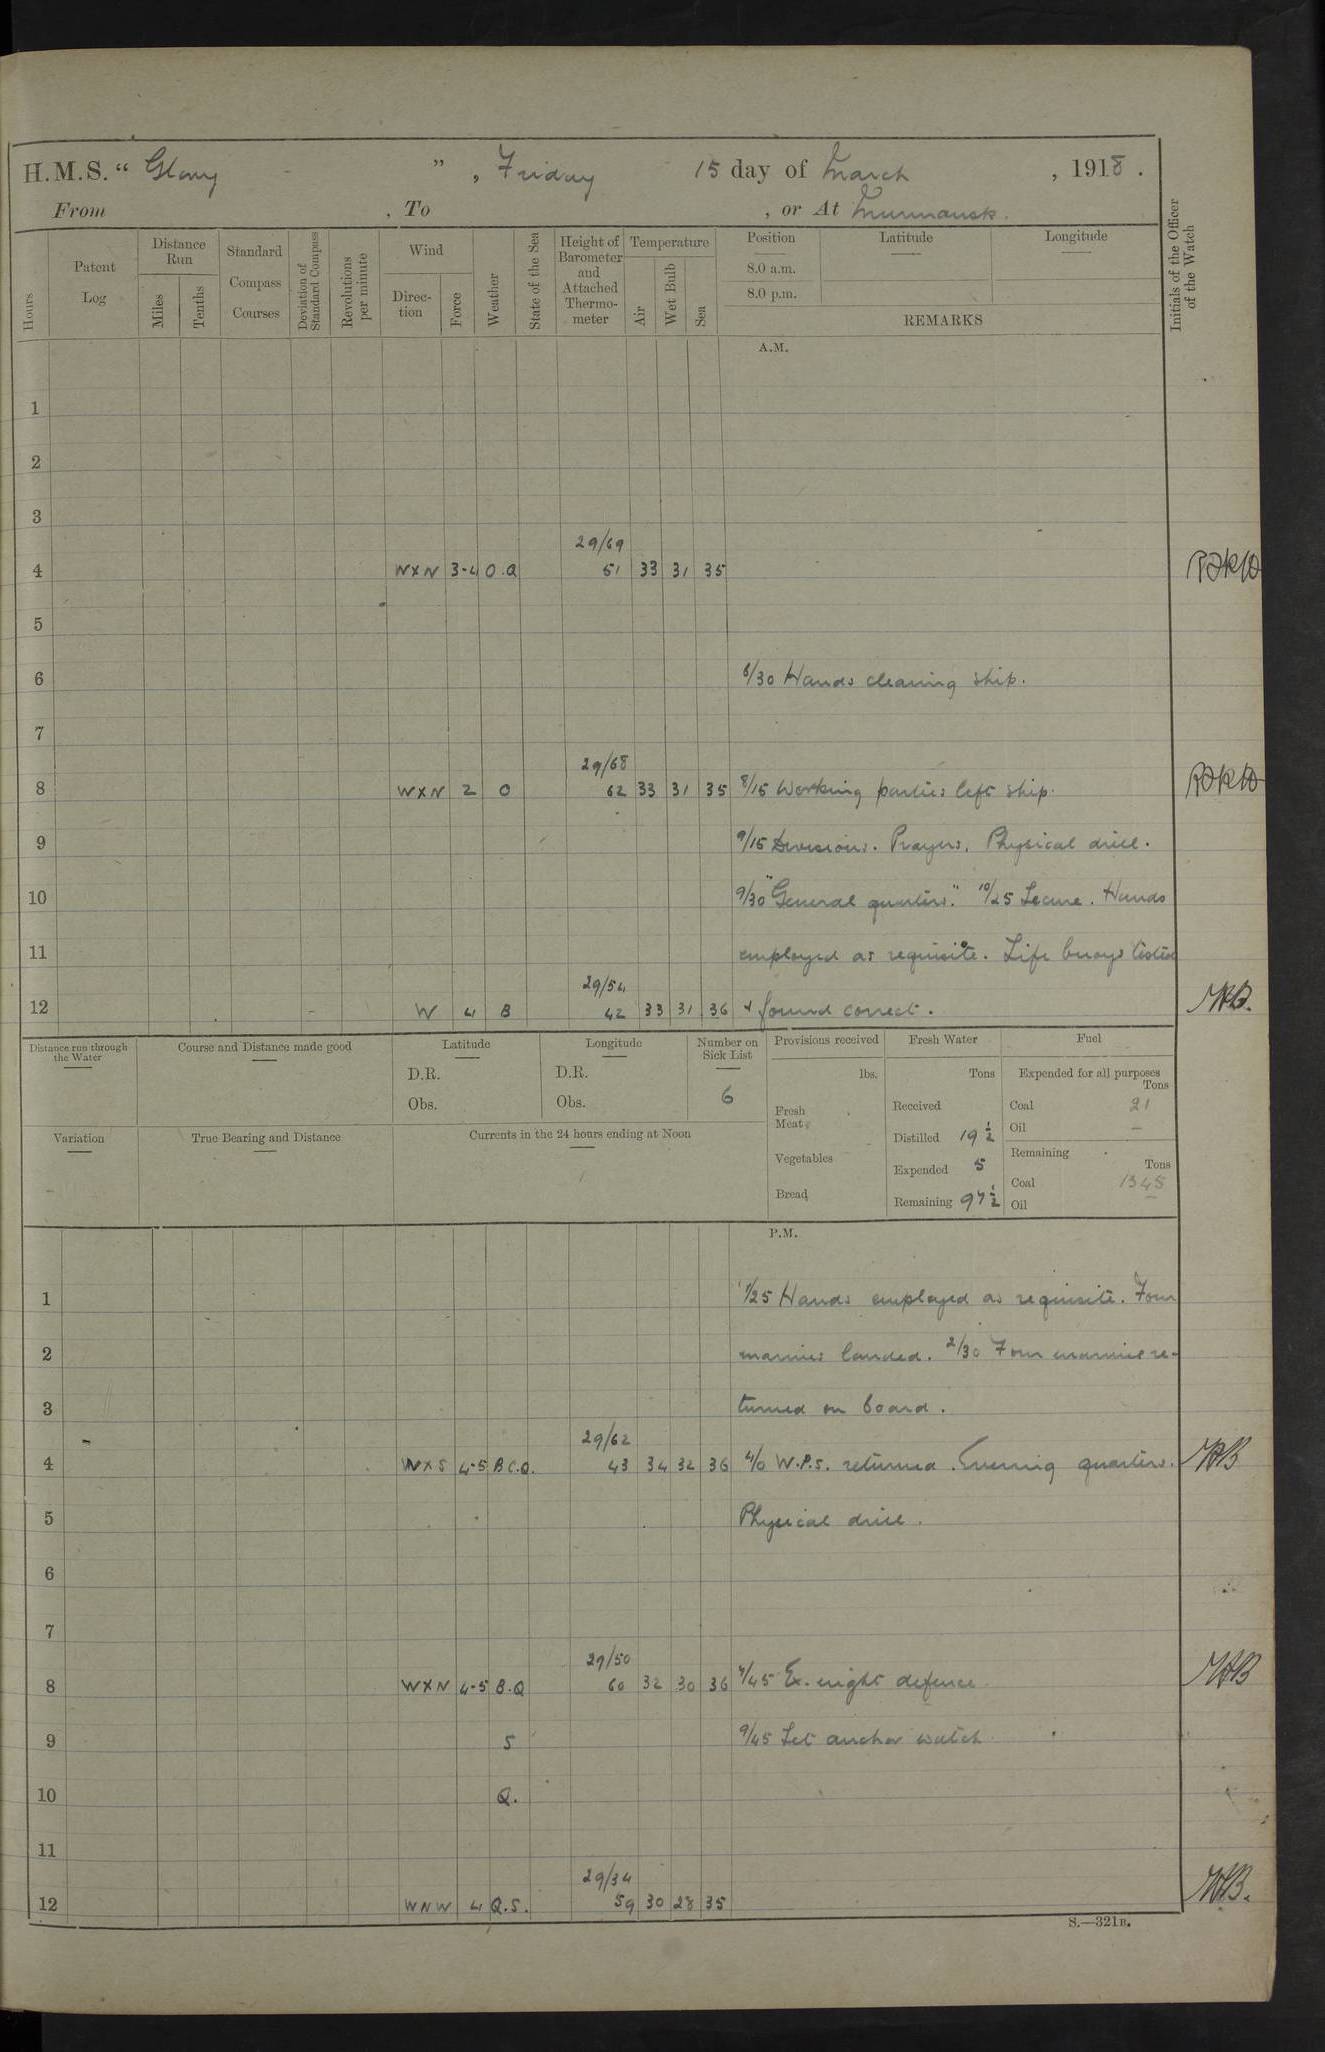 H.M.S. “ Glory ” , Friday 15 day of March , 1918 .
From , To , or At Murmansk.
Hours
Patent Log
Distance Run
Miles
Tenths
Standard Compass Courses
Deviation of Standard Compass
Revolutions per minute
Wind
Direction
Force
Weather
State of the Sea
Height of Barometer and Attached Thermometer
Temperature
Air
Wet Bulb
Sea
Position
8.0 a.m.
8.0 p.m.
Latitude
Longitude
REMARKS
Initials of the Officer of the Watch
A.M.
1
2
3
29/69
4 WXN 3-4 O.Q 51 33 31 35
5
6 6/30 Hands cleaning ship.
7
29/68
8 WXN 2 O 62 33 31 35 8/15 Working parties left ship.
9 9/15 Divisions. Prayers. Physical drill.
10 9/30 "General quarters." 10/25 Secure. Hands
11 employed as requisite. Life buoys tested
29/54
12 W 4 B 42 33 31 36 + found correct.
Distance run through the Water
Course and Distance made good
Latitude
D.R.
Obs.
Longitude
D.R.
Obs.
Number on Sick List
6
Provisions received
lbs.
Fresh Meat
Vegetables
Bread
Fresh Water
Tons
Received
Distilled 19 1/2
Expended 5
Remaining 97 1/2
Fuel
Expended for all purposes
Tons
Coal 21
Oil —
Remaining
Tons
Coal 1345
Oil —
Variation
True Bearing and Distance
Currents in the 24 hours ending at Noon
P.M.
1 1/25 Hands employed as requisite. Four
2 marines landed. 2/30 Four marines re-
3 turned on board.
29/62
4 WXS 4-5 B.C.Q. 43 34 32 36 4/0 W.P.s. returned. Evening quarters.
5 Physical drill.
6
7
29/50
8 WXN 4-5 B.Q 60 32 30 36 7/45 Ex. night defence
9 S 9/45 Set anchor watch
10 Q.
11
29/34
12 WNW 4 Q.S. 59 30 28 35
S.—321B.